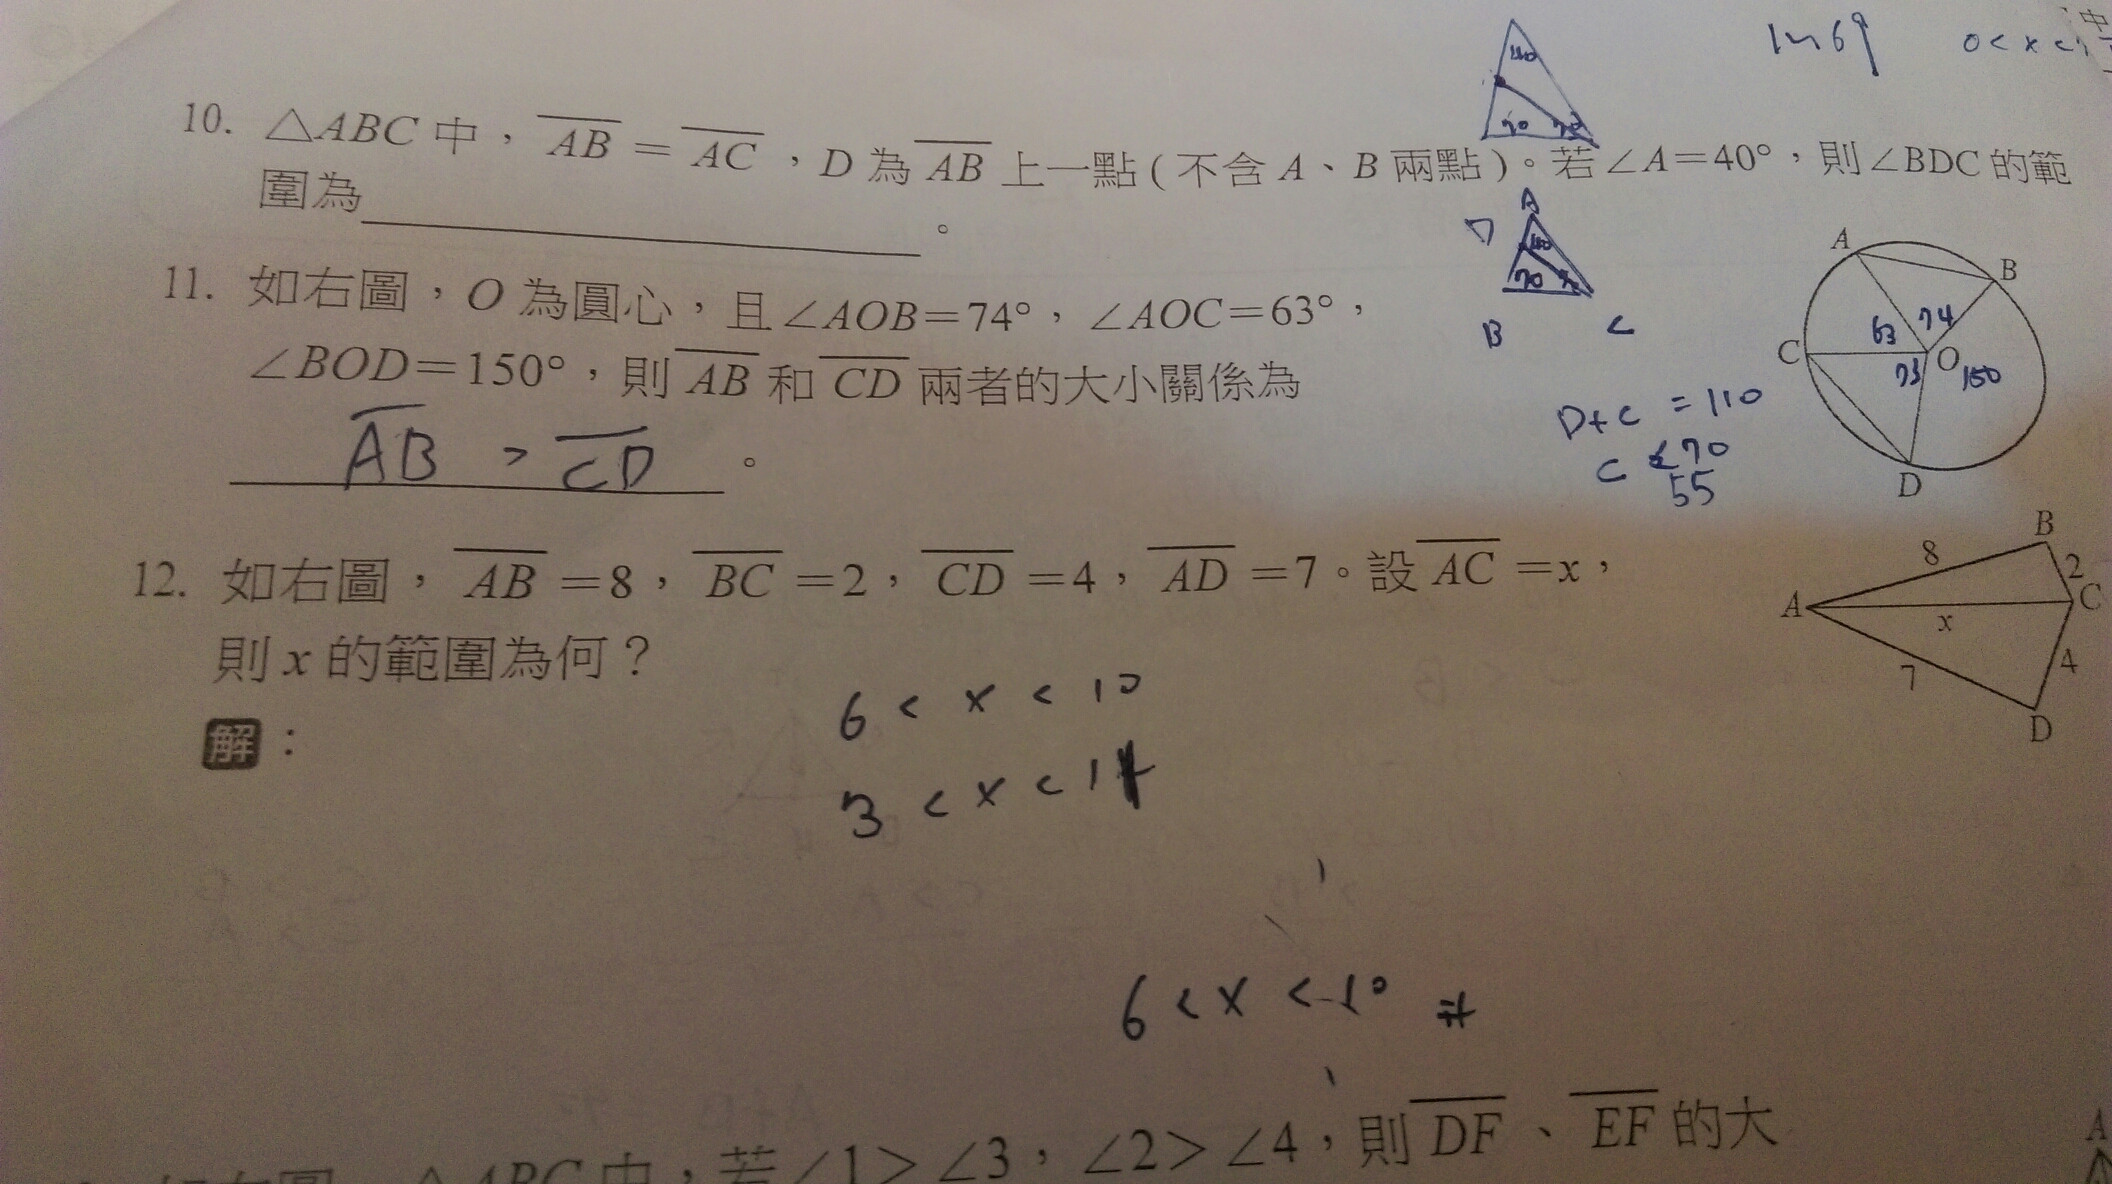 1461 0<x<
40
70 70
10. △ABC 中，AB＝AC，D 為 AB 上一點(不含 A、B 兩點)。若∠A＝40°，則∠BDC 的範
圍為　　　　。
A
D
40
70
B C
D+C = 110
C <70
55
11. 如右圖，O 為圓心，且∠AOB＝74°，∠AOC＝63°，
∠BOD＝150°，則 AB 和 CD 兩者的大小關係為
AB > CD 。
A
B
63 74
C O
73 150
D
12. 如右圖，AB＝8，BC＝2，CD＝4，AD＝7。設 AC＝x，
則 x 的範圍為何？
解：
6 < x < 10
3 < x < 11
6 < x < 10 #
B
8
2
A C
x
4
7
D
△ABC 中，若∠1＞∠3，∠2＞∠4，則 DF、EF 的大
A